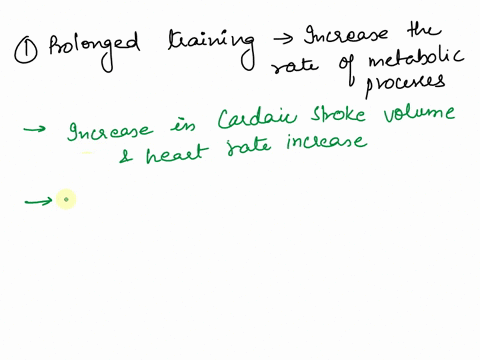 ① Prolonged training → Increase the
rate of metabolic
processes
→ Increase in Cardaic Stroke volume
& heart rate increase
→